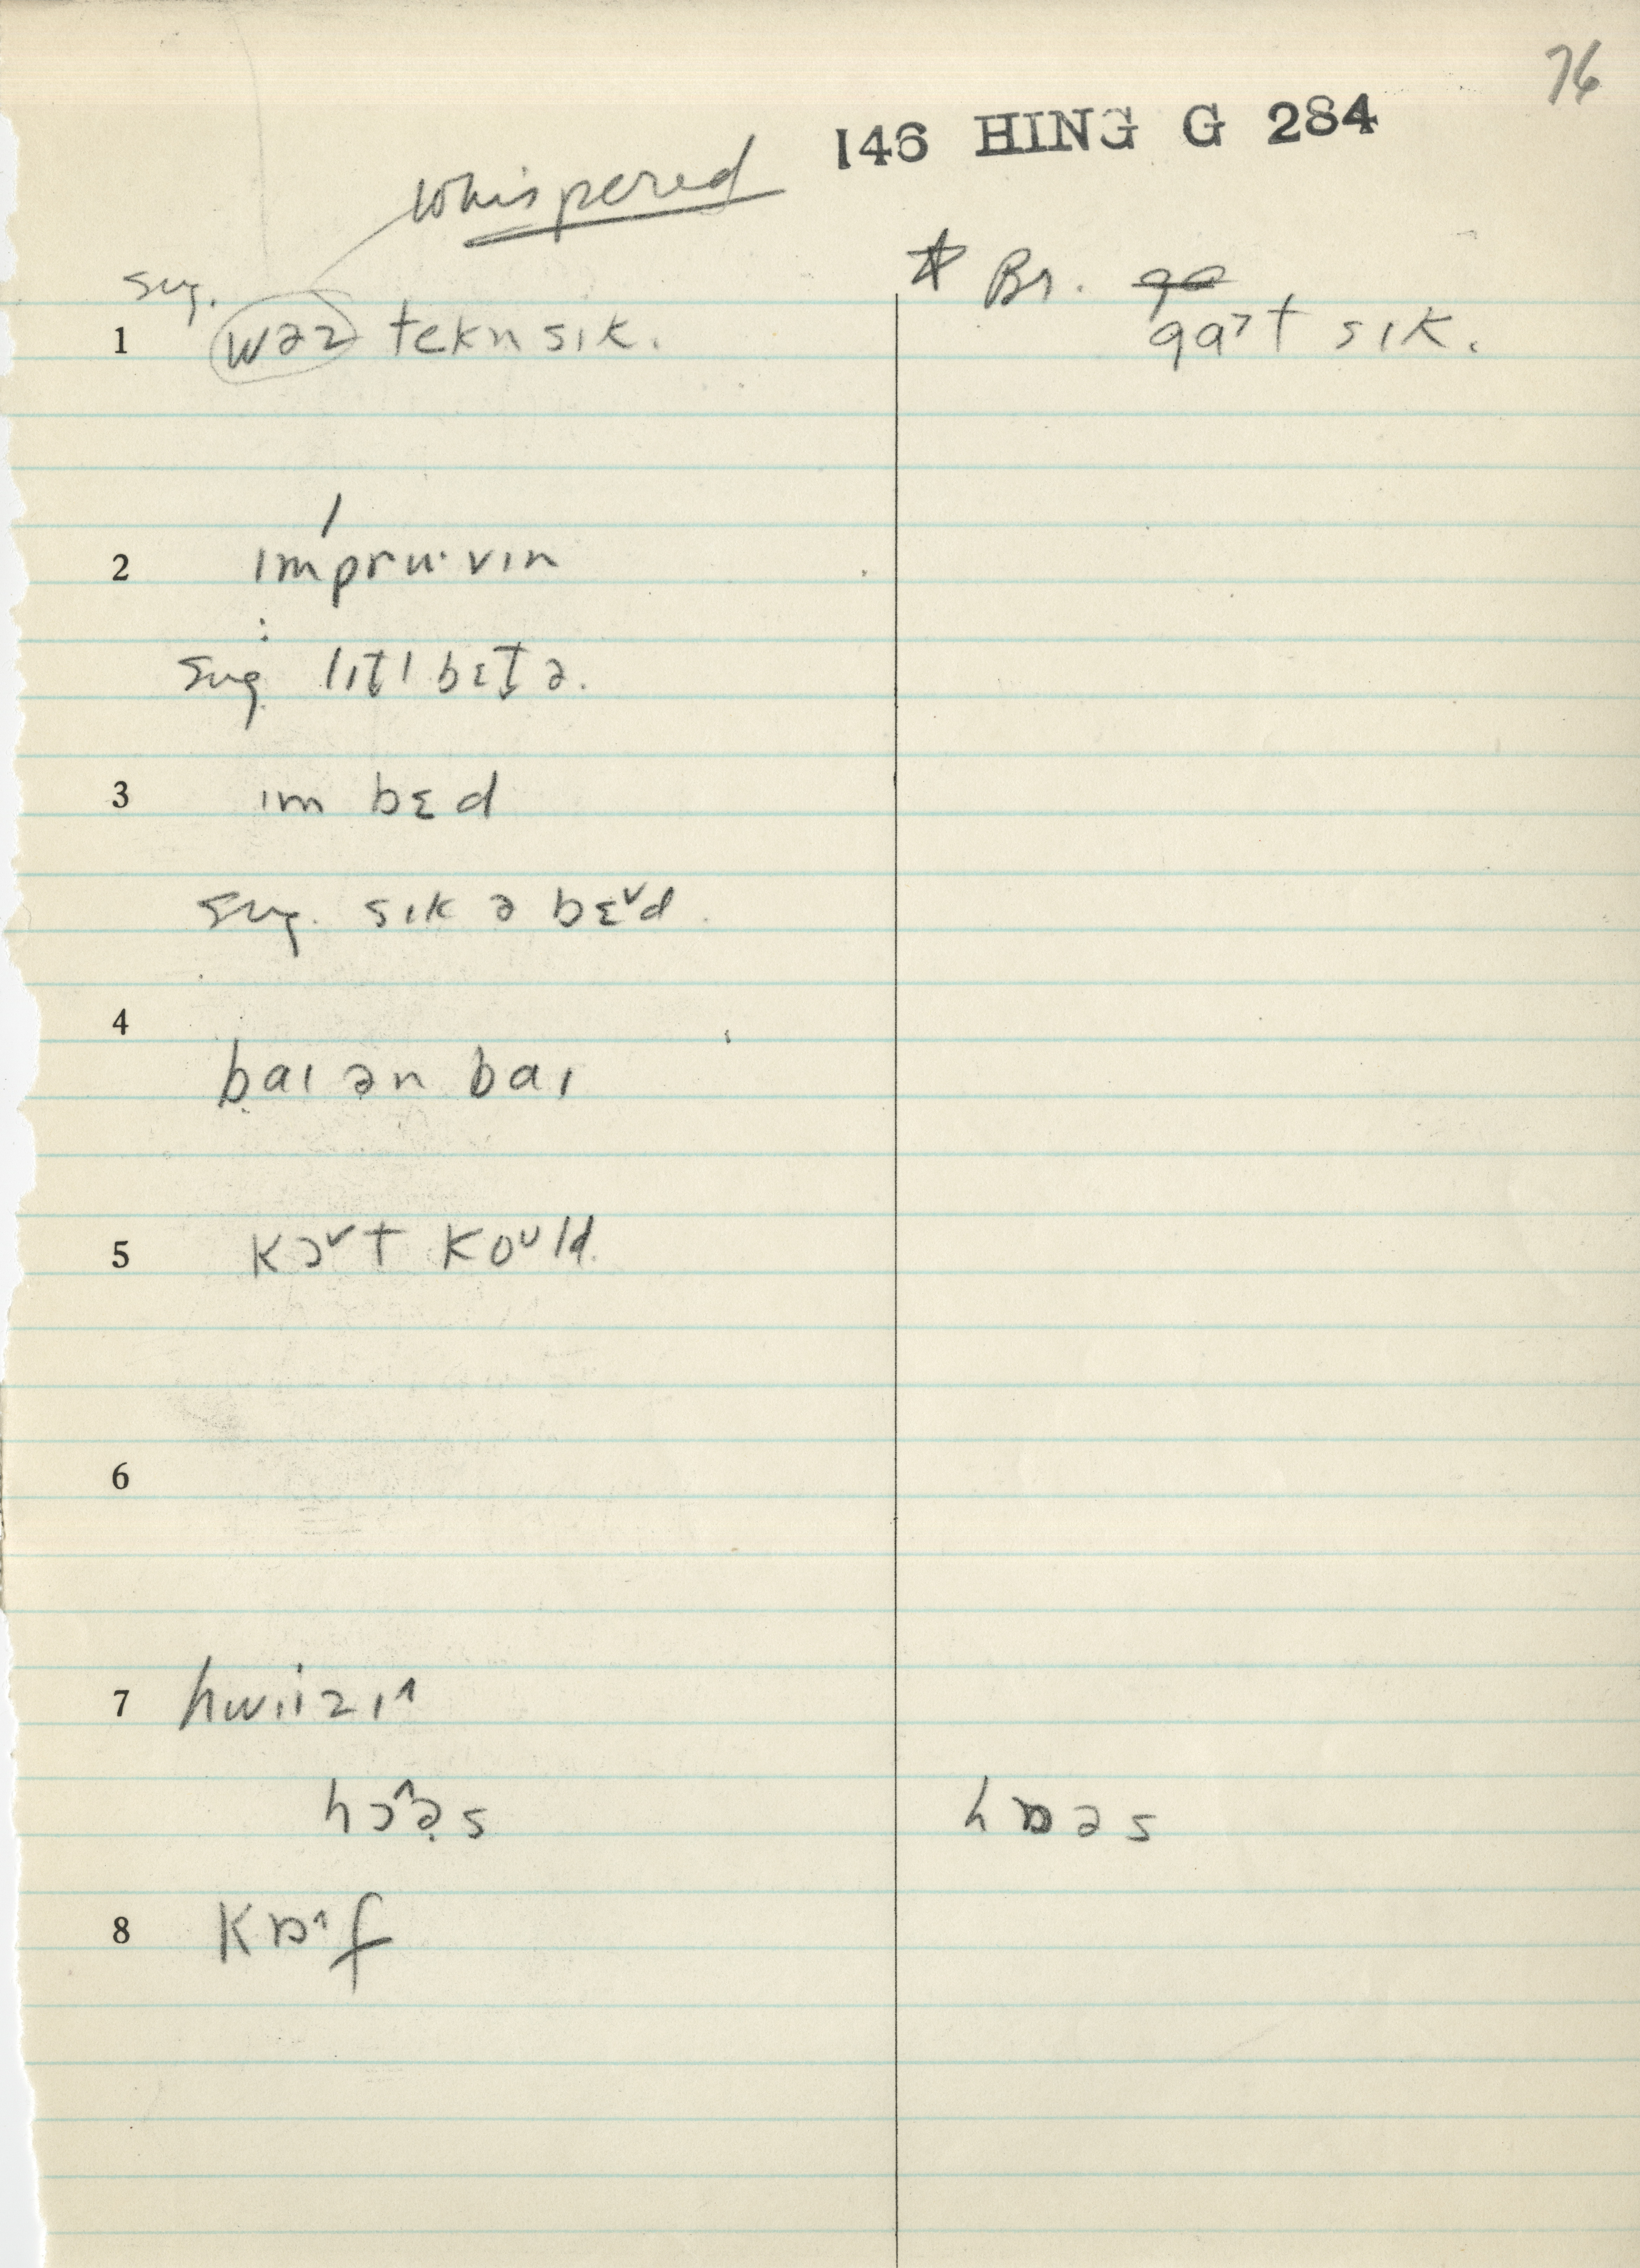 76
146 HING G 284
whispered
sug.
* Br. ga
1 wəz tekn sɪk.
ga˃t sɪk.
2 ɪmpru·vɪn
sug lɪt̬l bɛt̬ə.
3 ɪm bɛd
sug. sɪk ə bɛ˅d.
4
baɪ ən baɪ
5 kɔ˅t koᴜld.
6
7 hwiizɪ^
hɔ^ə̯s
hɒəs
8 kɒ^f